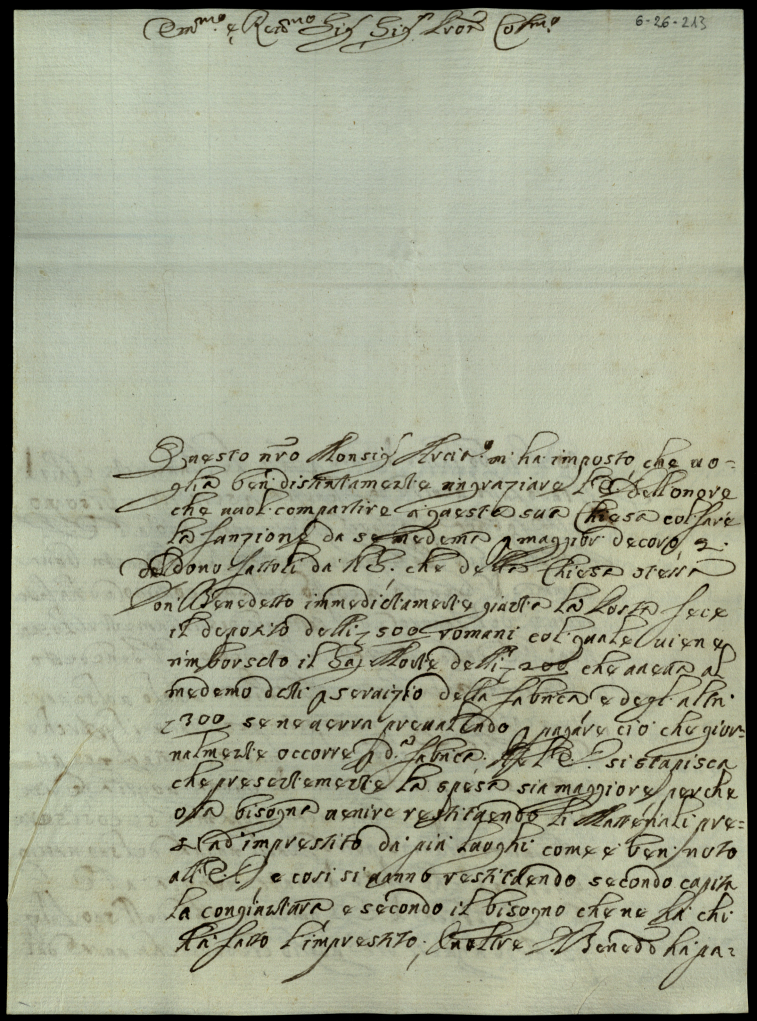 Em.mo e Rev.mo Sig.r Sig.r Pron Col.mo
6-26-213
Questo nro Monsig.r Arcip.e m'ha imposto che vo=
glia ben distintamente ringraziare l'E dell'onore
che vuol compartire a questa sua Chiesa col fare
la funzione da se medema p maggior decoro, e
del dono fattoli da che della Chiesa stessa
Don Benedetto immediatamente giunta la Posta fece
il deposito delli 500 romani col quale viene
rimborsato il Monte delli 200 che aveva al
medemo dati p servizio della fabrica e degl'altri
300 se ne verra prevalendo p pagare ciò che gior=
nalmente occorre p d.a fabrica. si stupisca
che presentemente la spesa sia maggiore, perche
ora bisogna venire restituendo li Materiali pre=
si ad imprestito da più luoghi come è ben noto
all'E e cosi si vanno restituendo secondo capita
la congiuntura e secondo il bisogno che ne ha chi
ha fatto l'imprestito. Inoltre D. Bened.o ha pa=